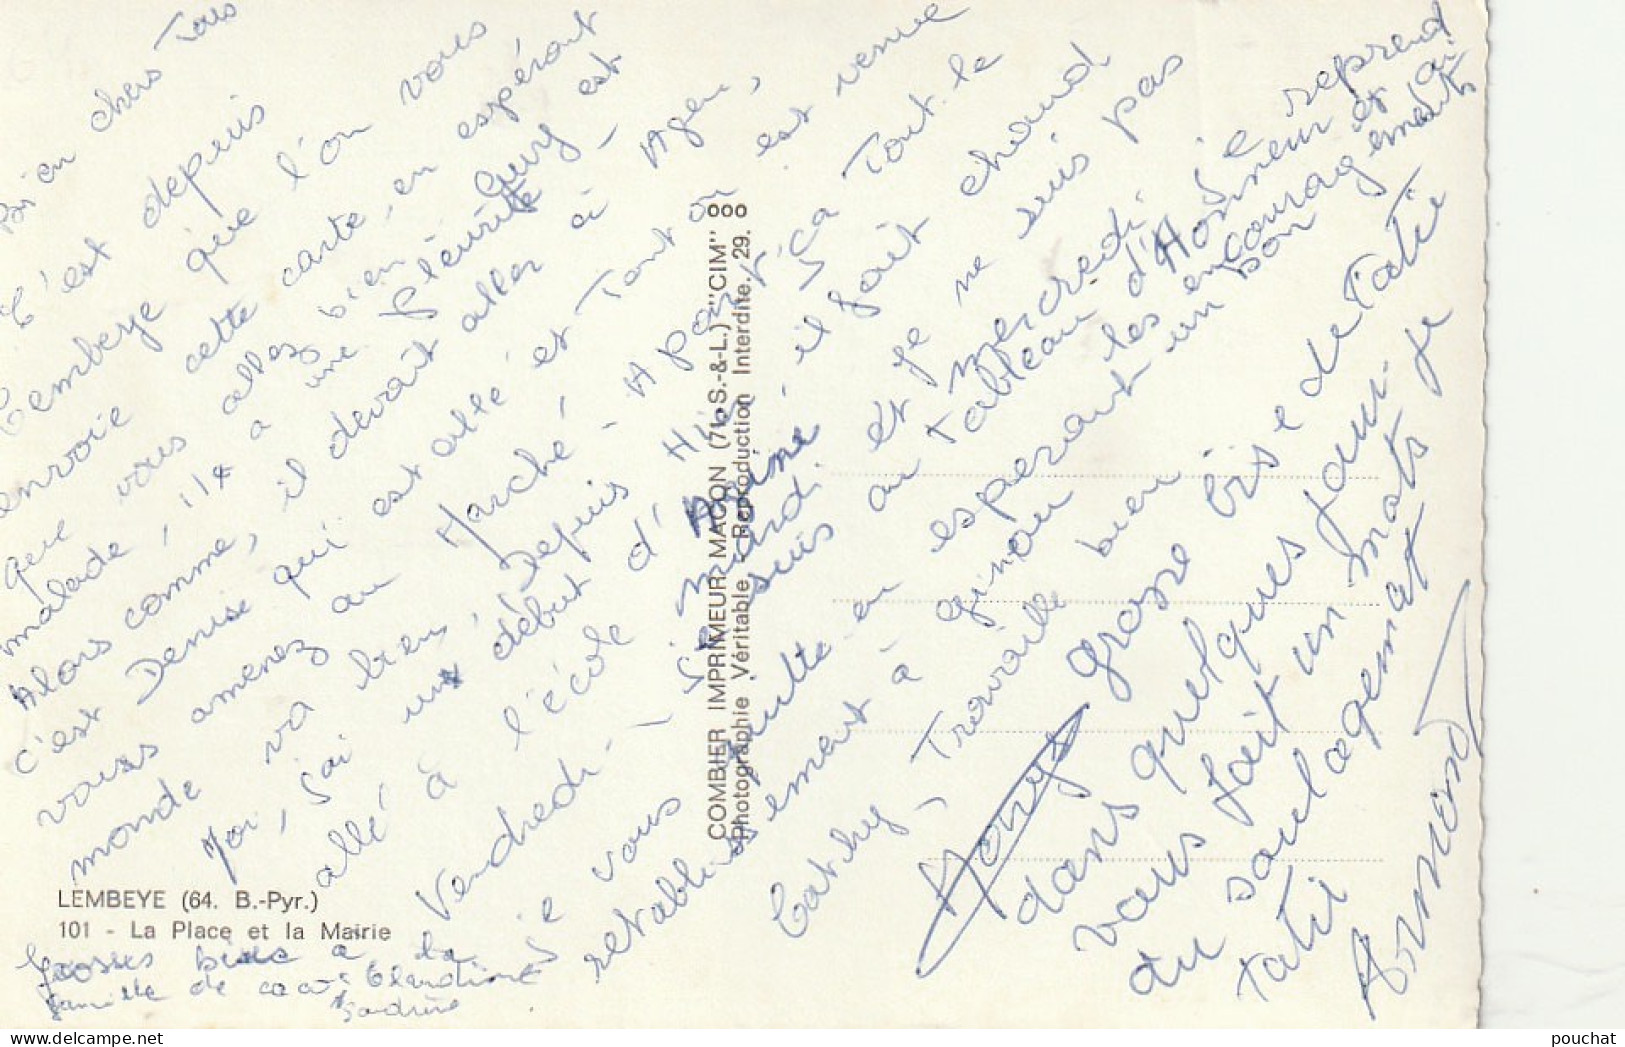 Bien chers Tous
C'est depuis
Lembeye que l'on vous
envoie cette carte, en espérant
que vous allez bien. Guy est
malade, il a une Pleurite -
Alors comme, il devait aller à Agen,
c'est Denise qui est allé et Tant on est venue
vous amenez au Marché - A part ça Tout le
monde va bien, Depuis Hier il fait chaud
Moi, j'ai un début d'Angine et je ne suis pas
allé à l'école mardi et mercredi. Je reprend
Vendredi - Je suis au Tableau d'Honneur et ai
les encouragements
Je vous quitte en esperant un bon
retablissement à ginou
Cathy, Travaille bien
Grosse bise de Tatie
Monys
dans quelques jour je
vous fait un mots
du soulagement
Tatie
Armond
Grosses bises à la
famille de
Sandrine
LEMBEYE (64. B.-Pyr.)
101 - La Place et la Mairie
COMBIER IMPRIMEUR MACON (71. S.-&-L.) "CIM"
Photographie Véritable - Reproduction Interdite. 29.
pouchat